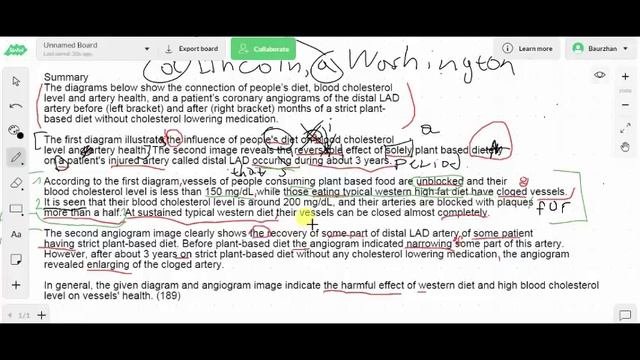 Unnamed Board
Export board
Collaborate
Learn more
Baurzhan
a Lincoln, a Washington
Summary
The diagrams below show the connection of people's diet, blood cholesterol
level and artery health, and a patient's coronary angiograms of the distal LAD
artery before (left bracket) and after (right bracket) months of a strict plant-
based diet without cholesterol lowering medication.
The first diagram illustrates the influence of people's diet on blood cholesterol
level and artery health. The second image reveals the reversible effect of solely plant based diet
on a patient's injured artery called distal LAD occuring during about 3 years.
that's
a
period
According to the first diagram, vessels of people consuming plant based food are unblocked and their
blood cholesterol level is less than 150 mg/dL, while those eating typical western high fat diet have cloged vessels.
It is seen that their blood cholesterol level is around 200 mg/dL, and their arteries are blocked with plaques
more than a half. At sustained typical western diet their vessels can be closed almost completely.
for
The second angiogram image clearly shows the recovery of some part of distal LAD artery of some patient
having strict plant-based diet. Before plant-based diet the angiogram indicated narrowing some part of this artery.
However, after about 3 years on strict plant-based diet without any cholesterol lowering medication, the angiogram
revealed enlarging of the cloged artery.
In general, the given diagram and angiogram image indicate the harmful effect of western diet and high blood cholesterol
level on vessels' health. (189)
1/1